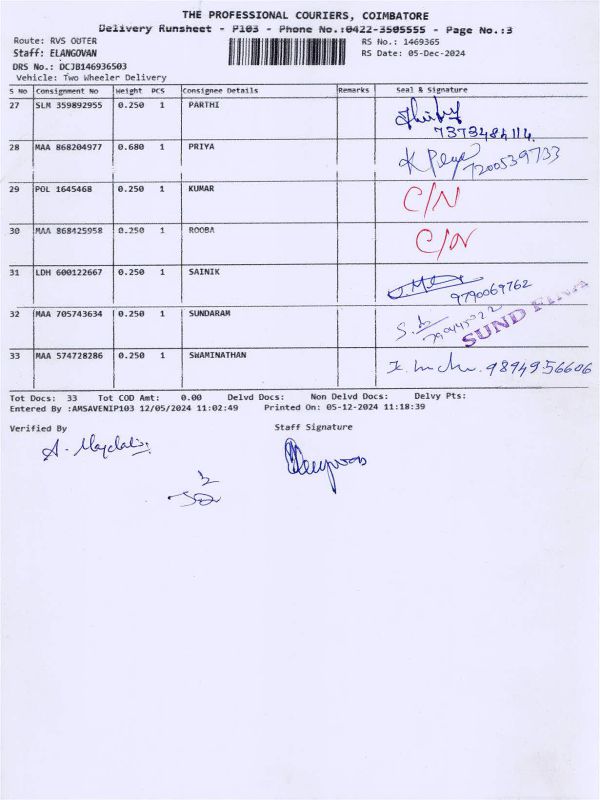 THE PROFESSIONAL COURIERS, COIMBATORE
Delivery Runsheet - P103 - Phone No.:0422-3505555 - Page No.:3
Route: RVS OUTER RS No.: 1469365
Staff: ELANGOVAN RS Date: 05-Dec-2024
DRS No.: DCJB146936503
Vehicle: Two Wheeler Delivery
S No Consignment No Weight PCS Consignee Details Remarks Seal & Signature
27 SLM 359892955 0.250 1 PARTHI
7373484114.
28 MAA 868204977 0.680 1 PRIYA K Priya
7200539733
29 POL 1645468 0.250 1 KUMAR C/N
30 MAA 868425958 0.250 1 ROOBA C/N
31 LDH 600122667 0.250 1 SAINIK
9790069762
32 MAA 705743634 0.250 1 SUNDARAM
SUND FINA
33 MAA 574728286 0.250 1 SWAMINATHAN 98949 56606
Tot Docs: 33 Tot COD Amt: 0.00 Delvd Docs: Non Delvd Docs: Delvy Pts:
Entered By :AMSAVENIP103 12/05/2024 11:02:49 Printed On: 05-12-2024 11:18:39
Verified By Staff Signature